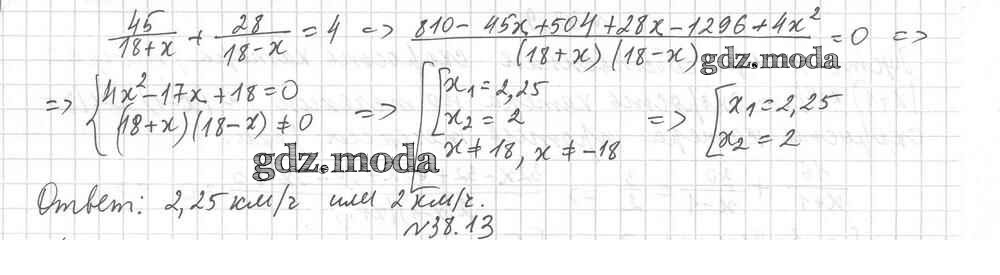 45/(18+x) + 28/(18-x) = 4 => (810 - 45x + 504 + 28x - 1296 + 4x²)/((18+x)(18-x)) = 0 =>
=> { 4x² - 17x + 18 = 0 (18+x)(18-x) ≠ 0 => [ [ x₁ = 2,25 x₂ = 2 x ≠ 18, x ≠ -18 => [ x₁ = 2,25 x₂ = 2
gdz.moda
gdz.moda
gdz.moda
Ответ: 2,25 км/ч или 2 км/ч.
№38.13